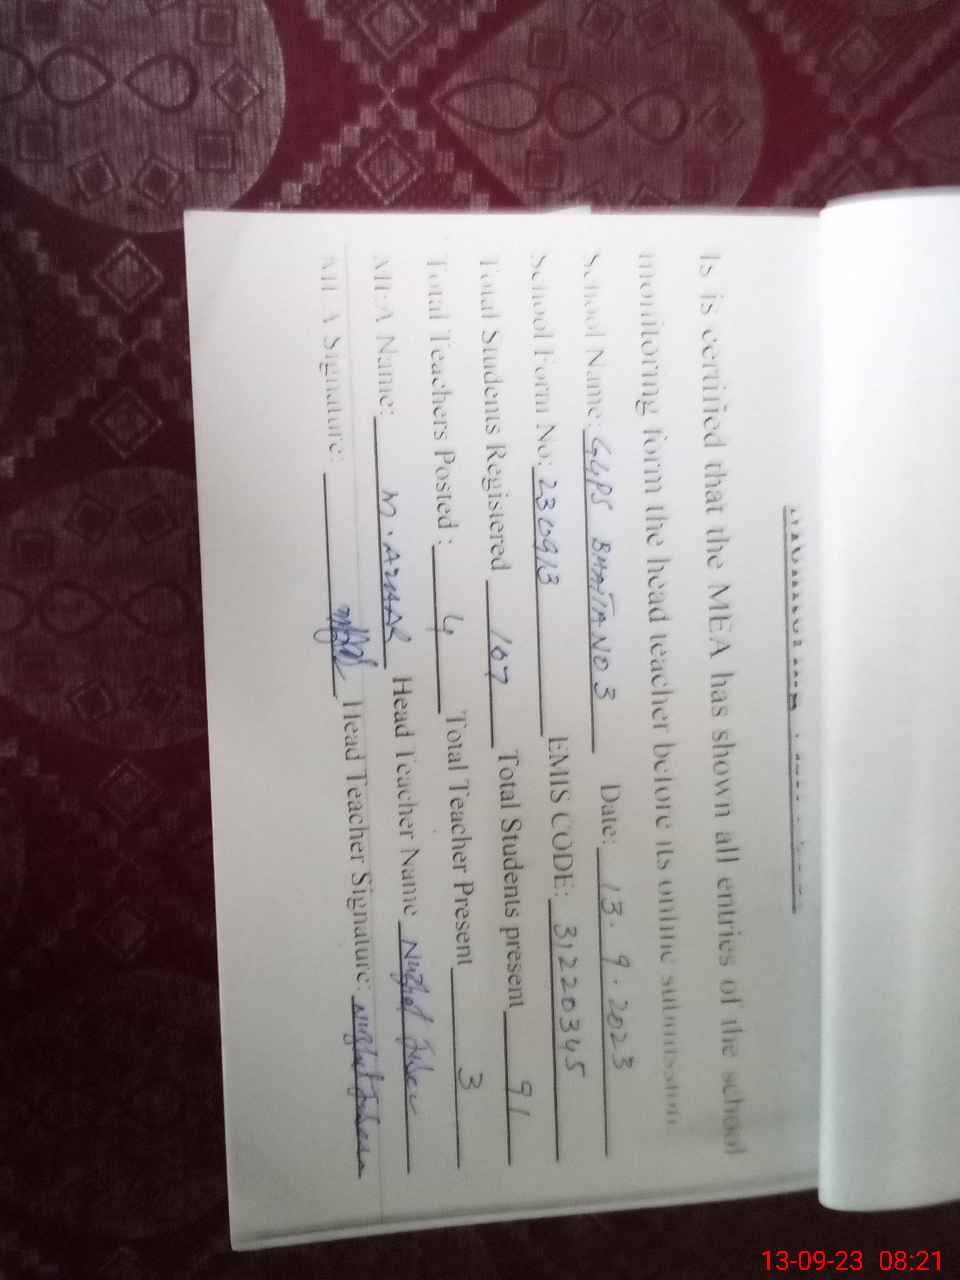 is is certified that the MEA has shown all entries of the school
monitoring form the head teacher before its online submission
School Name: GGPS BHAITA NO 3 Date: 13.9.2023
School Form No: 230913 EMIS CODE: 31220345
Total Students Registered 107 Total Students present 91
Total Teachers Posted : 4 Total Teacher Present 3
MEA Name: M. AZHAR Head Teacher Name Nuzhat
MEA Signature: Head Teacher Signature: Nuzhat
13-09-23 08:21